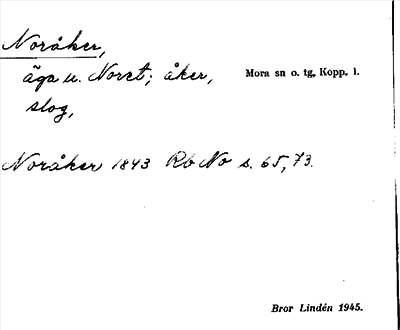 Noråker,
äga u. Noret; åker,
Mora sn o. tg, Kopp. l.
slog,
Noråker 1843 Rb No s. 65, 73.
Bror Lindén 1945.